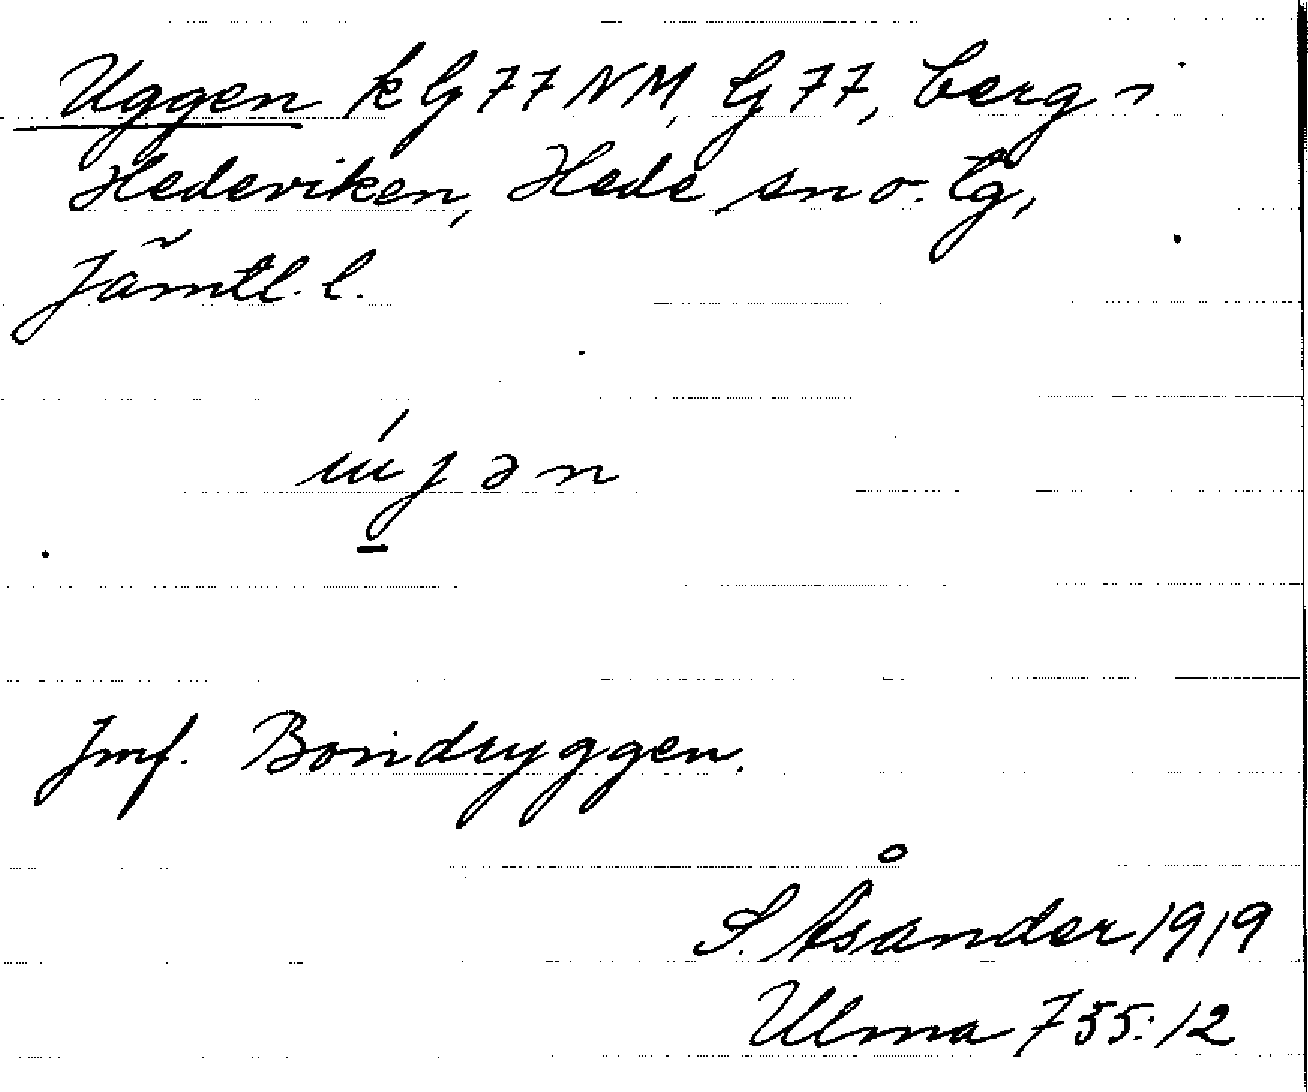 Uggen k G 77 NM, G 77, berg i
Hedeviken, Hede sn o. tg,
Jämtl. l.
úgən
Jmf. Bondryggen.
S. Åsander 1919
Ulma 755:12